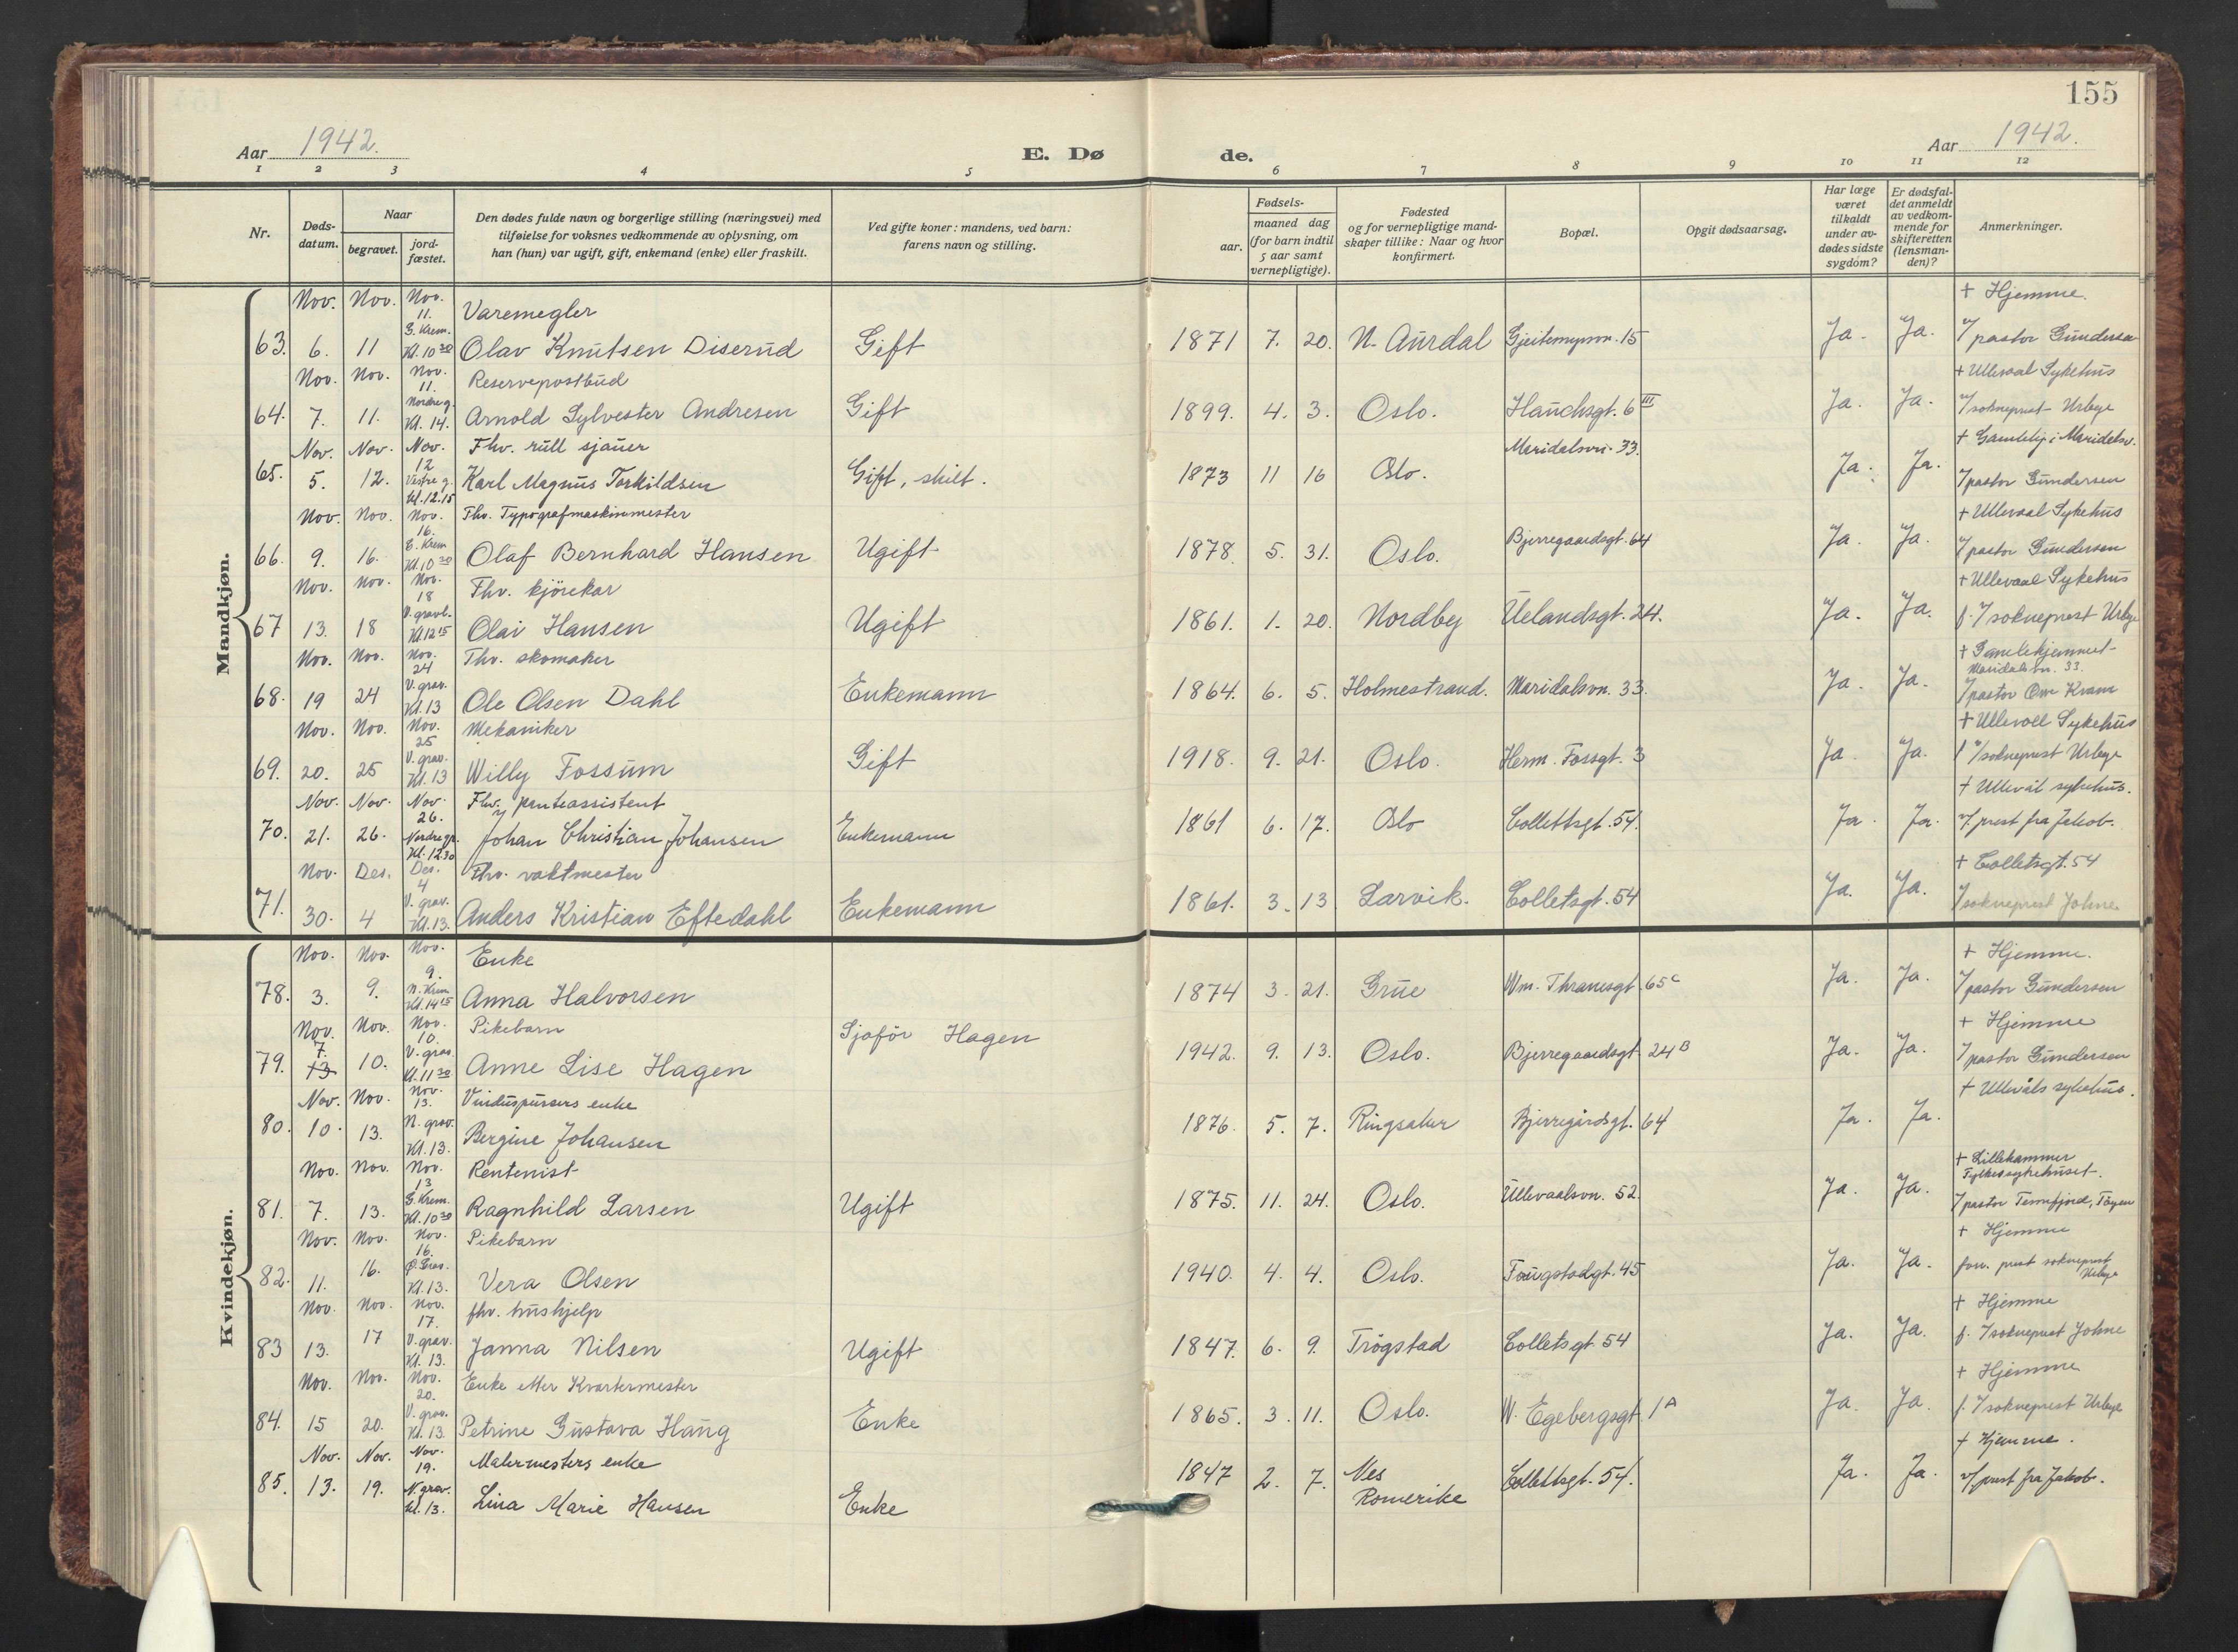 155
Aar 1942.
E. Dø de.
Aar 1942.
1 2 3 4 5 6 7 8 9 10 11 12
Nr.
Døds-
datum.
Naar
begravet.
jord-
fæstet.
Den dødes fulde navn og borgerlige stilling (næringsvei) med
tilføielse for voksnes vedkommende av oplysning, om
han (hun) var ugift, gift, enkemand (enke) eller fraskilt.
Ved gifte koner: mandens, ved barn:
farens navn og stilling.
Fødsels-
aar.
maaned dag
(for barn indtil
5 aar samt
vernepligtige).
Fødested
og for vernepligtige mand-
skaper tillike: Naar og hvor
konfirmert.
Bopæl.
Opgit dødsaarsag.
Har læge
været
tilkaldt
under av-
dødes sidste
sygdom?
Er dødsfal-
det anmeldt
av vedkom-
mende for
skifteretten
(lensman-
den)?
Anmerkninger.
Mandkjøn.
Nov. Nov. Nov. 11. Varemegler + Hjemme.
63. 6. 11 Krem. Kl. 10 30 Olav Knutsen Diserud Gift 1871 7. 20. N. Aurdal Geitemyrsvn. 15 Ja. Ja. pastor Gundersen
Nov. Nov. Nov. 11. Reservepostbud + Ullevaal Sykehus
64. 7. 11. Nordre g. Kl. 14. Arnold Sylvester Andresen Gift 1899. 4. 3. Oslo. Hauchsgt. 6 III Ja. Ja. sokneprest Urbye
Nov. Nov. Nov. 12 Fhv. rull sjauer Maridalsvn. 33. + Gamlehj. i Maridalsv.
65. 5. 12. Vestre g. kl. 12.15 Karl Magnus Torkildsen Gift, skilt. 1873 11 16 Oslo. Ja. Ja. pastor Gundersen
Nov. Nov. Nov. 16. Fhv. Typografmaskinmester + Ullevaal Sykehus
66. 9. 16. Krem Kl. 10 30 Olaf Bernhard Hansen Ugift 1878. 5. 31. Oslo. Bjerregaardsgt. 64 Ja. Ja. pastor Gundersen
Nov. Nov. Nov. 18 Fhv. kjørekar + Ullevaal Sykehus
67 13. 18 V. gravl. Kl. 12 15 Olai Hansen Ugift 1861. 1. 20. Nordby Uelandsgt. 24. Ja. Ja. f. sokneprest Urbye
Nov. Nov. Nov. 24 Fhv. skomaker + Gamlehjemmet Maridalsvn. 33.
68. 19 24 V. grav. Kl. 13 Ole Olsen Dahl Enkemann 1864. 6. 5. Holmestrand. Maridalsvn. 33. Ja. Ja. pastor Kvam
Nov. Nov. Nov. 25 Mekaniker + Ullevaal Sykehus
69. 20. 25 V. grav. Kl. 13 Willy Fossum Gift 1918. 9. 21. Oslo. Herm. Fossgt. 3 Ja Ja. sokneprest Urbye
Nov. Nov. Nov. 26. Fhv. panteassistent + Ullevål sykehus.
70. 21. 26. Nordre gr. Kl. 12 30 Johan Christian Johansen Enkemann 1861 6. 17. Oslo Collettsgt. 54. Ja. Ja. v/ prest fra Jakob.
Nov. Des. Des. 4 Fhv. vaktmester + Colletsgt. 54
71. 30. 4 V. grav. Kl. 13. Anders Kristian Eftedahl Enkemann 1861. 3. 13 Larvik. Colletsgt. 54 Ja. Ja. sokneprest Johne
Kvindekjøn.
Nov. Nov. Nov. 9. Enke + Hjemme.
78. 3. 9. N. Krem Kl. 14 15 Anna Halvorsen 1874 3. 21. Grue Wm. Thranesgt. 65 c Ja. Ja. pastor Gundersen
Nov. Nov. Nov. 10. Pikebarn Sjafør Hagen + Hjemme
79. 7. 13 10. V. grav. Kl. 11 30 Anne Lise Hagen 1942. 9. 13. Oslo. Bjerregaardsgt. 24 B Ja. Ja. pastor Gundersen
Nov. Nov. Nov. 13. Vinduspussers enke + Ullevåls sykehus.
80. 10. 13. N. grav. Kl. 13. Bergine Johansen 1876. 5. 7. Ringsaker Bjerregårdsgt. 64 Ja. Ja.
Nov. Nov. Nov. 13 Rentenist + Lillehammer Fylkessykehuset.
81. 7. 13. Krem. Kl. 10 30 Ragnhild Larsen Ugift 1875. 11. 24. Oslo. Ullevaalsvn. 52. Ja. Ja. pastor Tennfjord, Tøyen
Nov. Nov. Nov. 16. Pikebarn + Hjemme
82. 11. 16. Ø. Grav. Kl. 13. Vera Olsen 1940. 4. 4. Oslo. Fougstadgt. 45 Ja. Ja. forr. prest sokneprest Urbye
Nov. Nov. Nov. 17. fhv. hushjelp + Hjemme
83 13. 17 V. grav. Kl. 13. Janna Nilsen Ugift 1847. 6. 9. Trøgstad Colletsgt. 54 Ja. Ja. f. sokneprest Johne
Nov. Nov. Nov. 20. Enke etter Kvartermester + Hjemme
84. 15 20. V. grav. Kl. 13. Petrine Gustava Haug Enke 1865. 3. 11. Oslo. W. Egebergsgt. 1 A Ja. Ja. f. sokneprest Urbye
Nov. Nov. Nov. 19. Malermesters enke + Hjemme.
85. 13. 19. N. grav. kl. 13. Lina Marie Hansen Enke 1847 2. 7. Nes Romerike Collettsgt. 54. Ja. Ja. v/ prest fra Jakob.